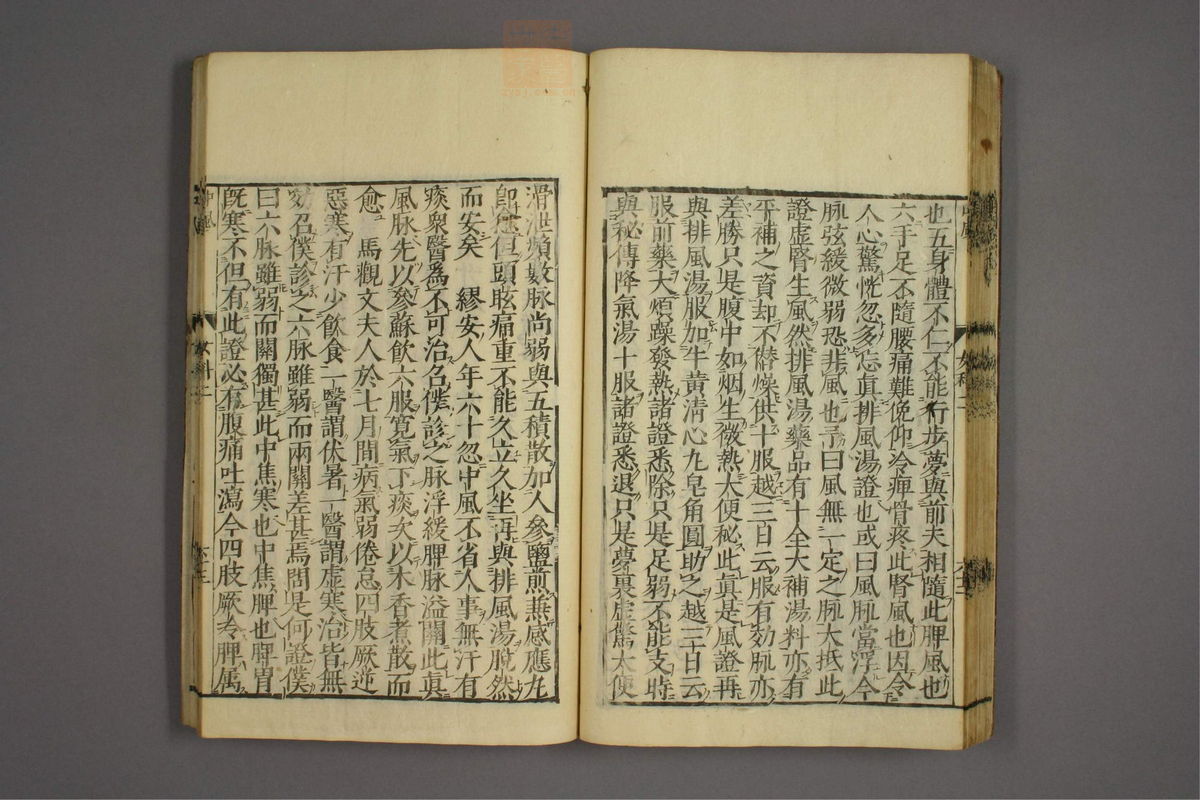 也五身體不仁不能行步夢與前夫相隨此脾風也
六手足不隨腰痛難俛仰冷痹骨疼此腎風也因令
人心驚恍忽多忘真排風湯證也或曰風脉當浮今
脉弦緩微弱恐非風也予曰風無一定之脉大抵此
證虛腎生風然排風湯藥品有十全大補湯料亦有
平補之資却不僭燥供十服越三日云服有効脉亦
差勝只是腹中如烟生微熱大便秘此真是風證再
與排風湯服加牛黄淸心九皂角圓助之越三十日云
服前藥大煩躁發熱諸證悉除只是足弱不能支時
與秘傳降氣湯十服諸證悉退只是夢裏虛驚大便
滑泄頻數脉尚弱與五積散加人參鹽煎兼感應九
即但頭眩痛重不能久立久坐再與排風湯脫然
而安矣 繆安人年六十忽中風不省人事無汗有
痰衆醫爲不可治名僕診之脉浮緩脾脉溢關此真
風脉先以參蘇飲六服寛氣下痰次以木香煮散而
愈 馬觀文夫人於七月間病氣弱倦怠四肢厥逆
惡寒有汗少飲食一醫謂伏暑一醫謂虛寒治皆無
効召僕診之六脉雖弱而兩關差甚焉問是何證僕
曰六脉雖弱而關獨甚此中焦寒也中焦脾也脾胃
旣寒不但有此證必有腹痛吐瀉今四肢厥冷脾属